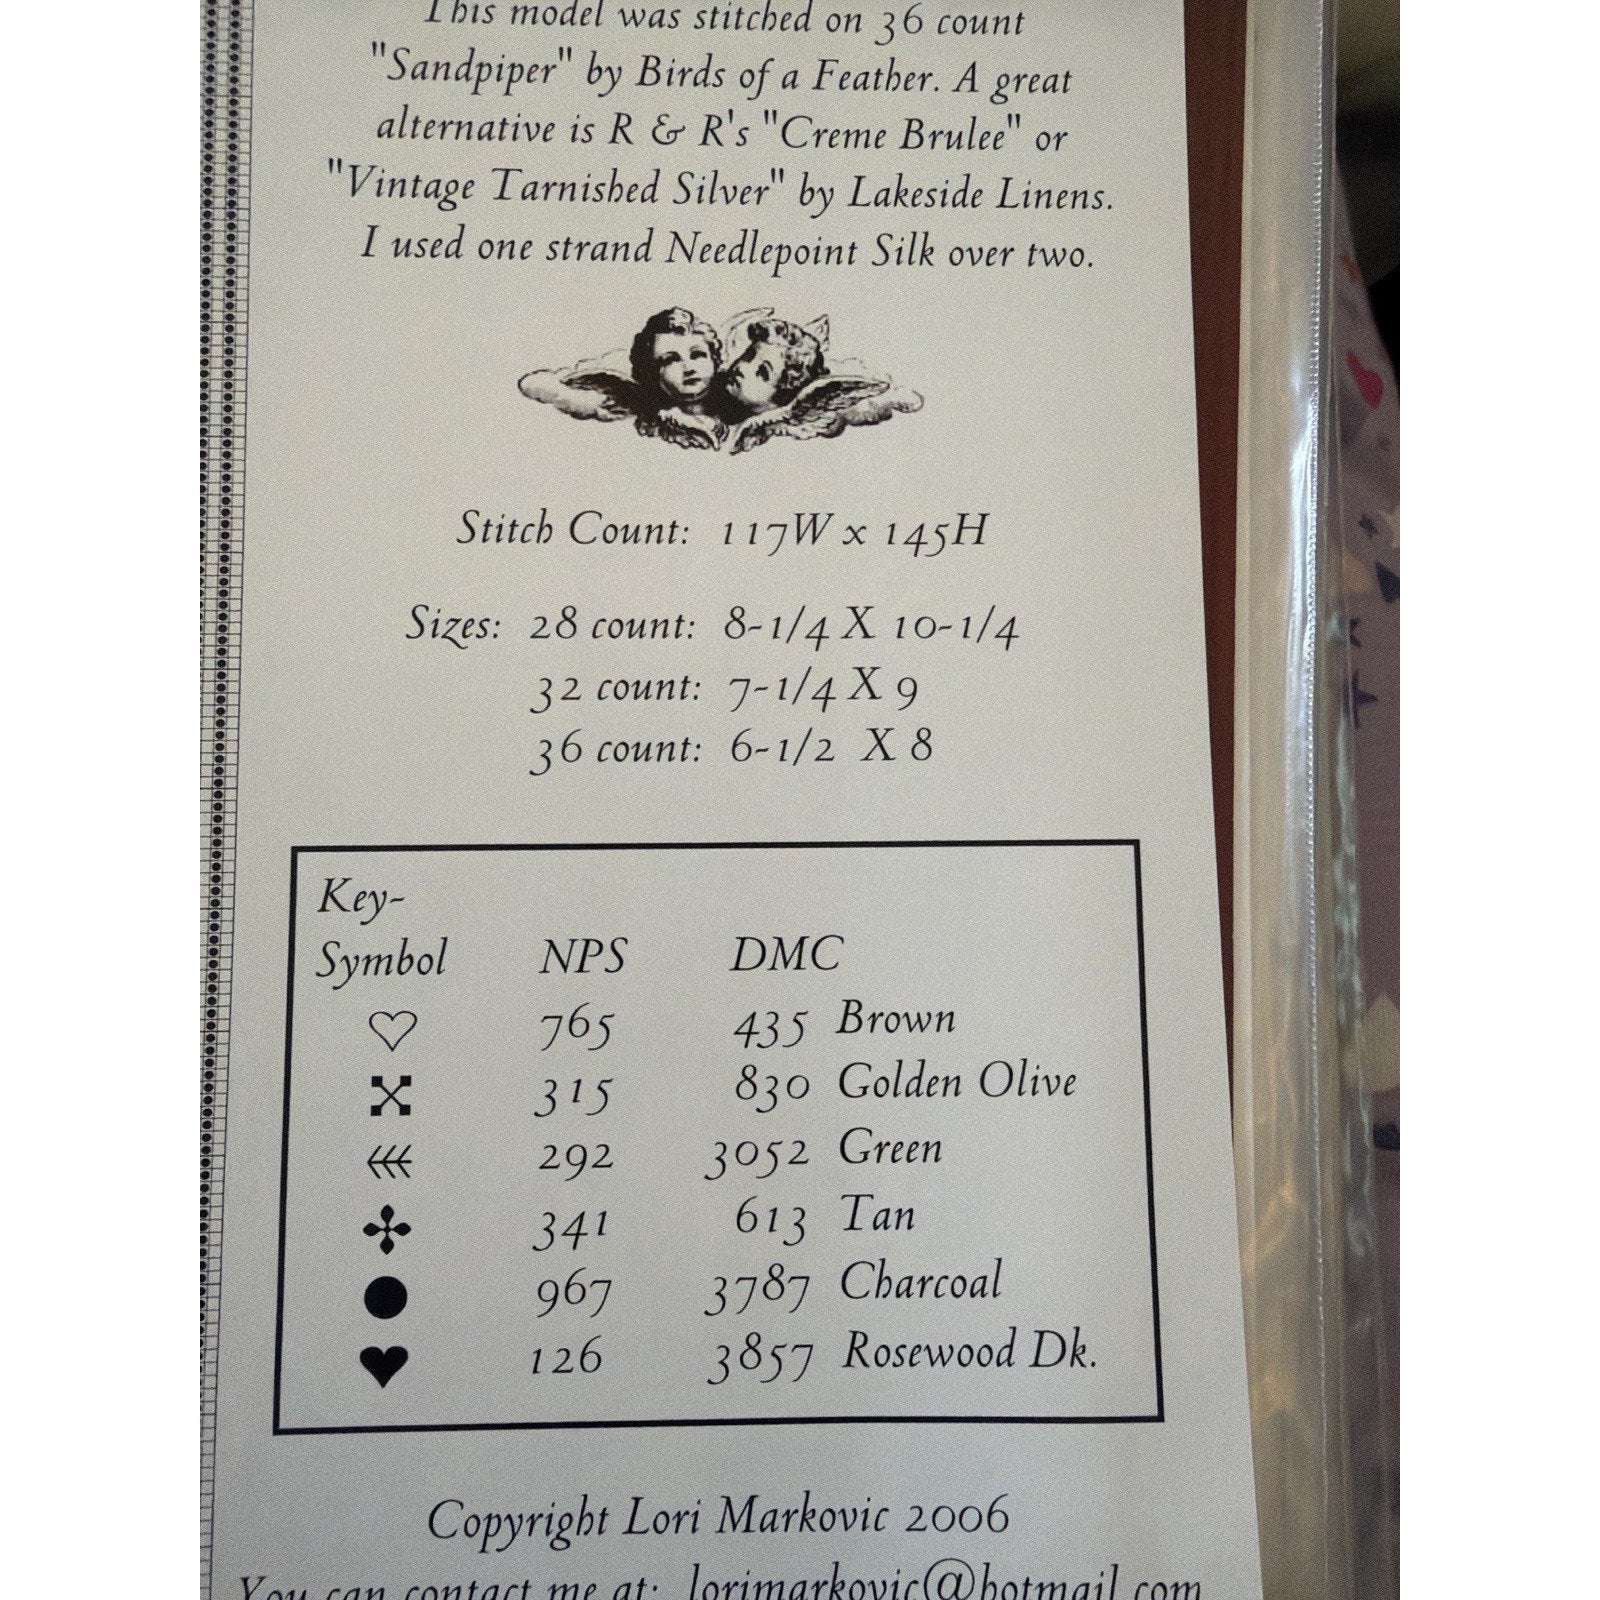 This model was stitched on 36 count
"Sandpiper" by Birds of a Feather. A great
alternative is R & R's "Creme Brulee" or
"Vintage Tarnished Silver" by Lakeside Linens.
I used one strand Needlepoint Silk over two.
Stitch Count: 117W x 145H
Sizes: 28 count: 8-1/4 X 10-1/4
32 count: 7-1/4 X 9
36 count: 6-1/2 X 8
Key-
Symbol NPS DMC
♡ 765 435 Brown
315 830 Golden Olive
292 3052 Green
341 613 Tan
● 967 3787 Charcoal
♥ 126 3857 Rosewood Dk.
Copyright Lori Markovic 2006
You can contact me at: lorimarkovic@hotmail.com